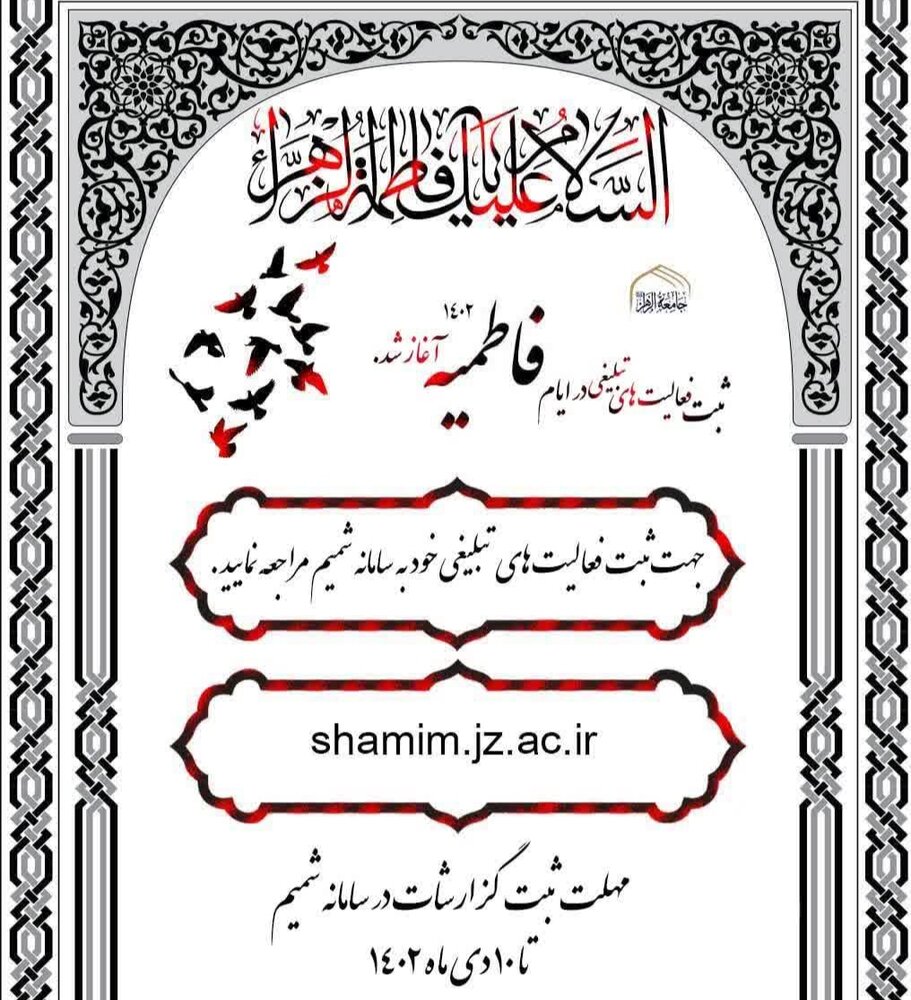 السَّلامُ عَلَیكِ یا فاطِمَةُ الزَّهراء
جامعة الزهراء
ثبت فعالیت‌های تبلیغی در ایام فاطمیه ۱۴۰۲ آغاز شد.
جهت ثبت فعالیت‌های تبلیغی خود به سامانه شمیم مراجعه نمایید.
shamim.jz.ac.ir
مهلت ثبت گزارشات در سامانه شمیم
تا ۱۰ دی ماه ۱۴۰۲